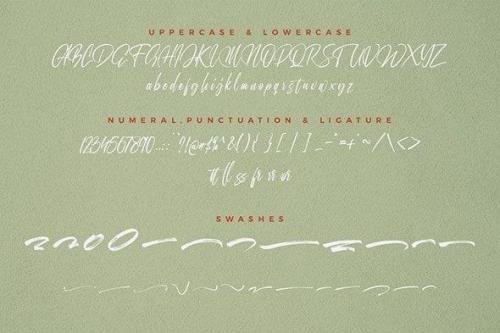 UPPERCASE & LOWERCASE
ABCDEFGHIJKLMNOPQRSTUVWXYZ
abcdefghijklmnopqrstuvwxyz
NUMERAL,PUNCTUATION & LIGATURE
1234567890
tt ll ss fr
SWASHES